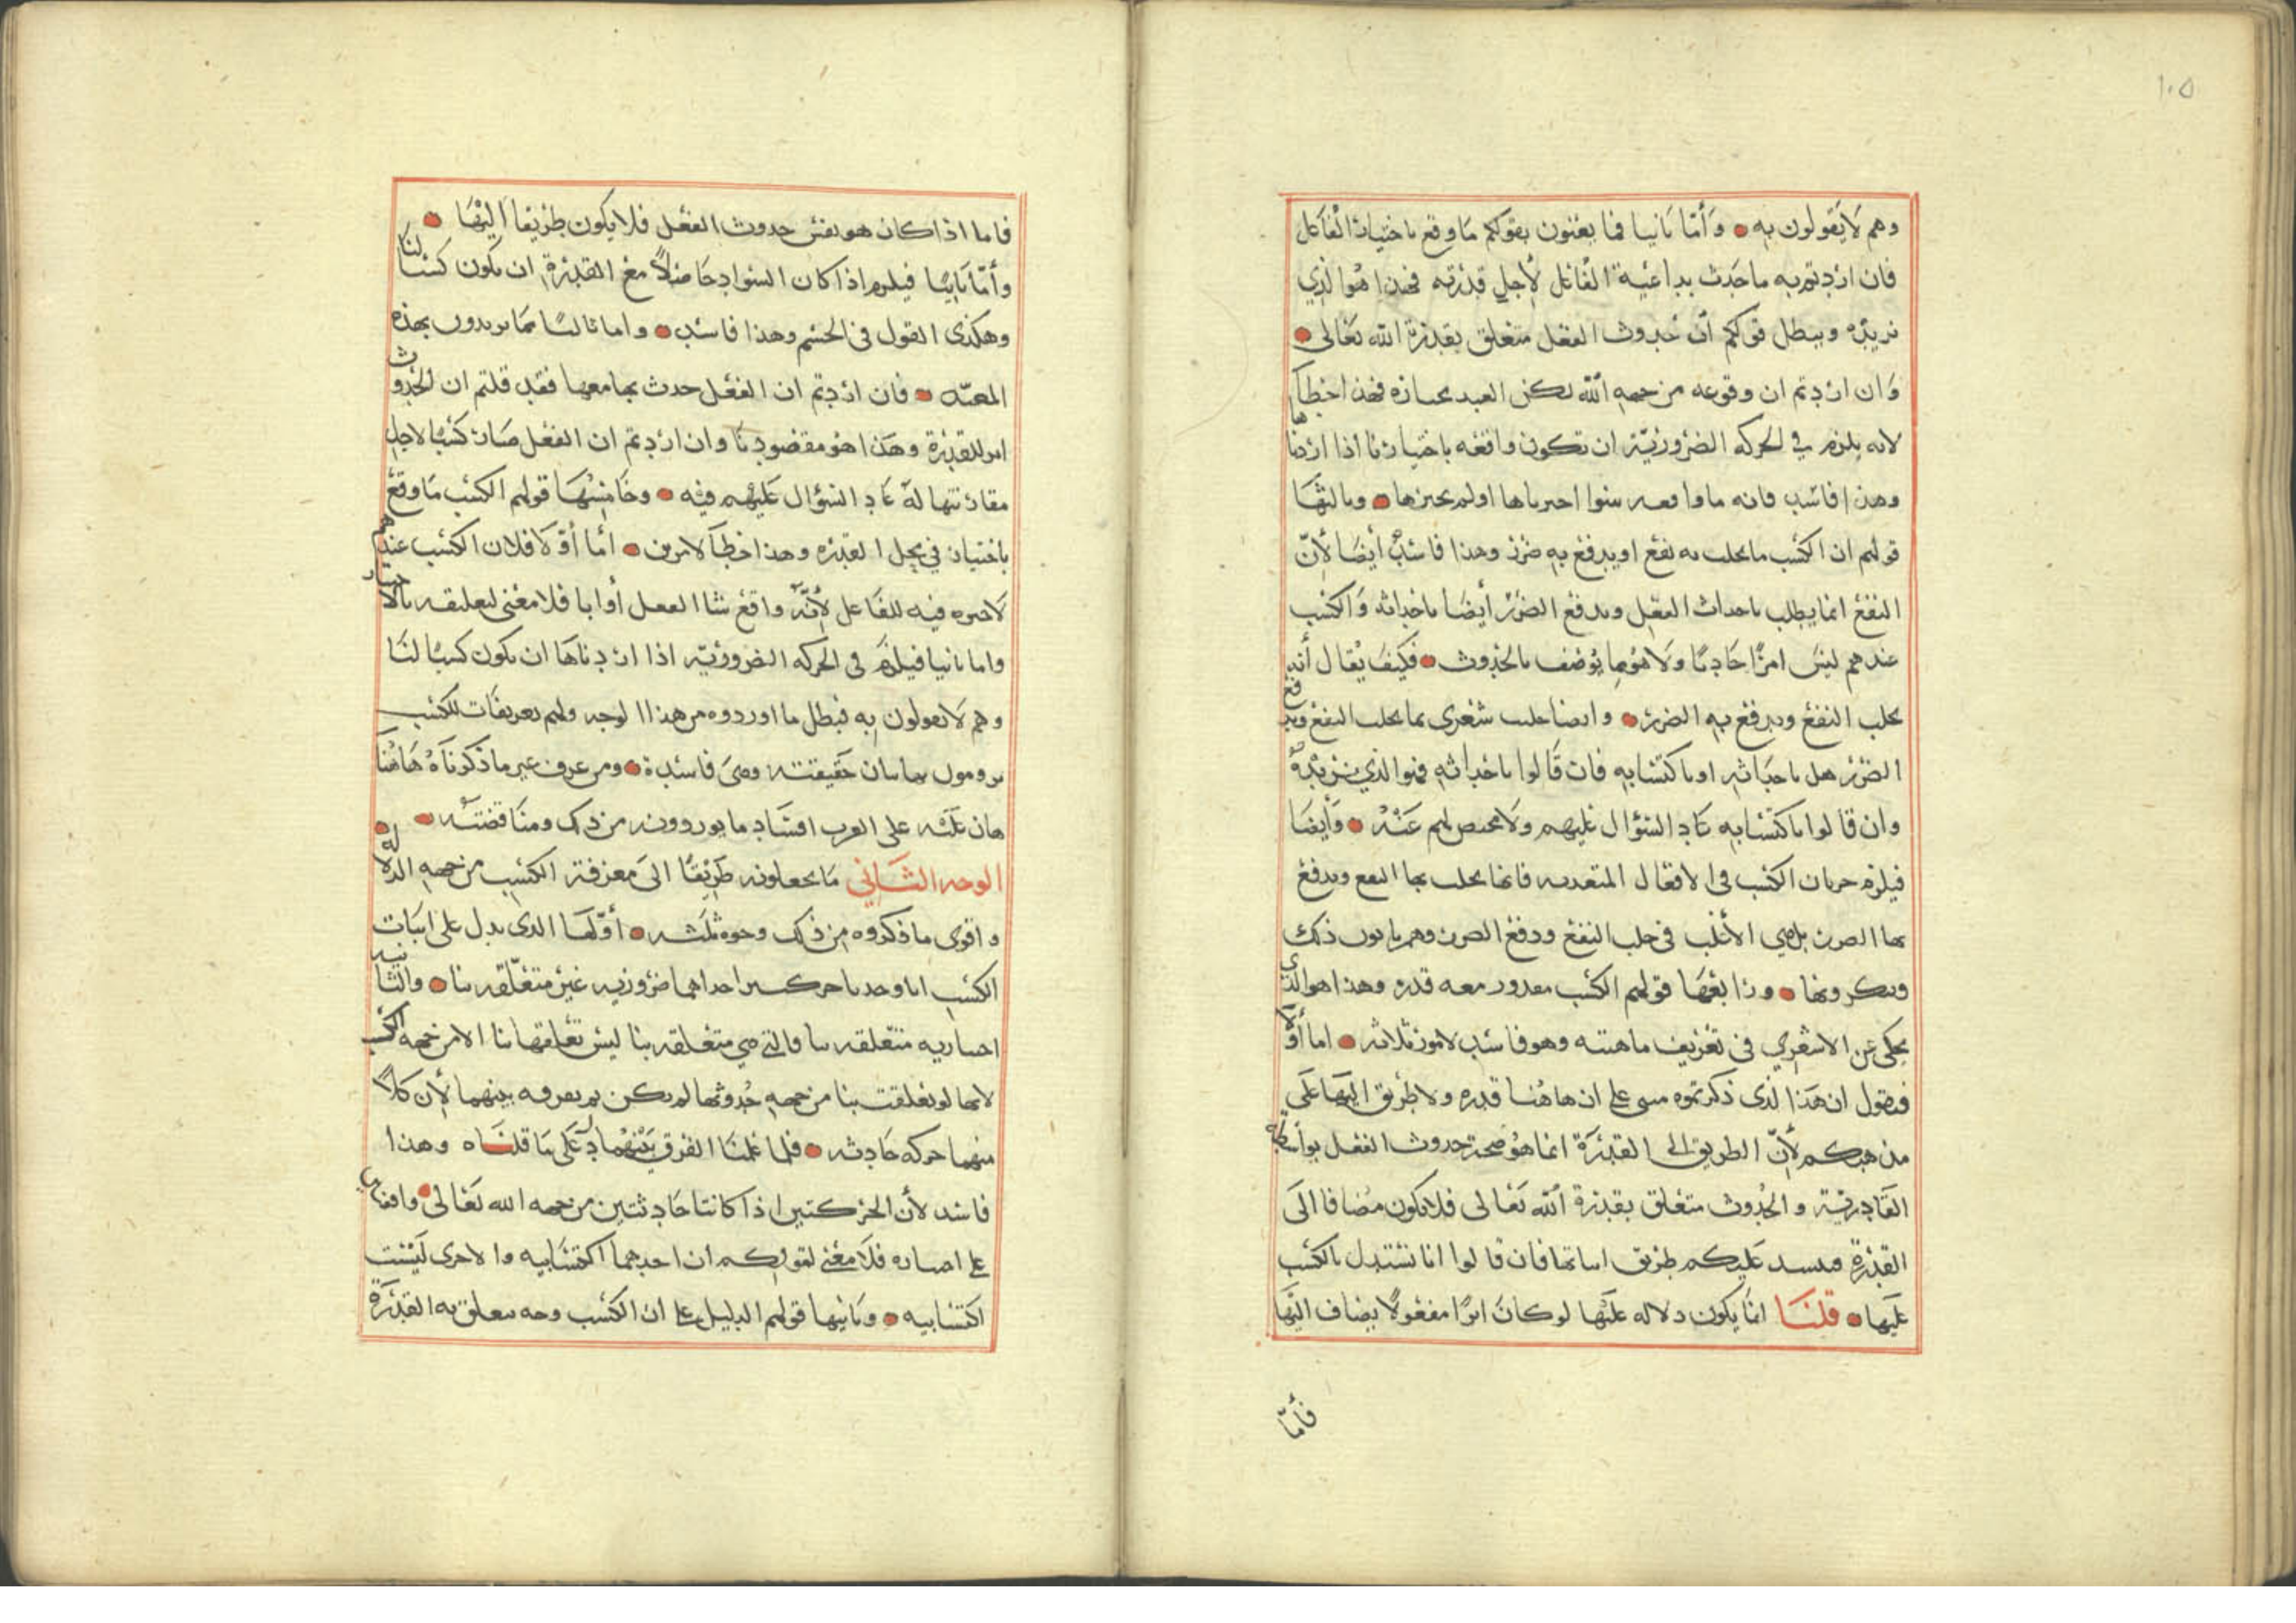 ١٠٥
وهم لا يقولون به • وأما ثانيا فما يعنون بقولكم ما وقع باختيار الفاعل
فان اردتم به ما حدث بداعية الفاعل لأجل قدرته فهذا هو الذي
نريده ويبطل قولكم ان حدوث الفعل متعلق بقدرة الله تعالى •
وان اردتم ان وقوعه من جهة الله لكن العبد مختاره فهذا خطأ
لانه يلزم في الحركه الضروريّة ان تكون واقعه باختيارنا اذا اردناها
وهذا فاسد فانه ما واقعه سوا اخترناها او لم نخترها • وثالثها
قولهم ان الكسب ما يجلب به نفع او يدفع به ضرر وهذا فاسدٌ أيضا لأنّ
النفع انما يطلب باحداث الفعل ويدفع الضرر أيضا باحداثه والكسب
عندهم ليس امرًا حادثا ولا هو مما يوصف بالحدوث • فكيف يُقال أنه
يجلب النفع ويدفع به الضرر • وايضا فليت شعرى بما يجلب النفع ويدفع
الضرر هل باحداثه او باكتسابه فان قالوا باحداثه فهو الذي نريدهُ
وان قالوا باكتسابه عاد السؤال عليهم ولا مخلص لهم عنهُ • وأيضا
فيلزم جريان الكسب في الافعال المتعديه فانها يجلب بها النفع ويدفع
بها الضرر بل هي الأغلب في جلب النفع ودفع الضرر وهم يابون ذلك
وينكرونها • ورابعها قولهم الكسب مقدور معه قدره وهذا هو الذي
يحكى عن الاشعري في تعريف ماهيته وهو فاسد لامور ثلاثه • اما أوّلا
فنقول ان هذا الذى ذكرتموه مبنى على ان هاهُنا قدره ولا طريق اليها على
مذهبكم لأنّ الطريق الى القدرة انما هو صحة حدوث الفعل بواسطة
القادريّة والحدوث متعلق بقدرة الله تعالى فلا يكون مضافا الى
القدرة فيفسد عليكم طريق اثباتها فان قالوا انا نستدل بالكسب
عليها • قلنا انما يكون دلاله عليها لو كان امرًا مفعولًا يضاف اليها
فأمّا
فاما اذا كان هو نفس حدوث الفعل فلا يكون طريقا اليها •
وأمّا ثانيا فيلزم اذا كان السواد حاصلًا مع القدرة ان يكون كسبا لنا
وهكذى القول في الجسم وهذا فاسد • واما ثالثا فما تريدون بهذه
المعيّه • فان اردتم ان الفعل حدث بمجامعها فقد قلتم ان الحدوث
اثر للقدرة وهذا هو مقصودنا وان اردتم ان الفعل صار كسبًا لاجل
مقارنتها له عاد السؤال عليهم فيه • وخامسها قولهم الكسب ما وقع
باختيار في محل القدره وهذا خطأ لامرين • أما أوّلا فلان الكسب عندهم
لا خيره فيه للفاعل لأنّه واقع شا الفعل أو ابا فلا معنى لتعليقه بالاختيار
واما ثانيا فيلزم في الحركه الضروريّه اذا اردناها ان يكون كسبًا لنا
وهم لا يقولون به فبطل ما اوردوه من هذا الوجه ولهم تعريفات للكسب
يرومون بها بيان حقيقته وهي فاسدة • ومن عرف غير ما ذكرناه هاهُنا
هان عليه على القرب افساد ما يوردونه من ذلك ومناقضته •
الوجه الثاني ما يجعلونه طريقًا الى معرفة الكسب من جهة الدلاله •
واقوى ما ذكروه من ذلك وجوه ثلثه • أوّلها الذى يدل على اثبات
الكسب انا وجدنا حركتين احداهما ضروريه غير متعلّقه بنا • والثانيه
اختياريه متعلقه بنا فالتي هي متعلقه بنا ليس تعلقها بنا الا من جهه الكسب
لانها لو تعلقت بنا من جهه حُدوثها لم يكن ثم تفرقه بينهما لأن كلًا
منهما حركه حادثه • فلما علمنا الفرق بينهما دلّ على ما قلناه وهذا
فاسد لأن الحركتين اذا كانتا حادثتين من جهه الله تعالى • واقفتان
على اختياره فلا معنى لقولكم ان احدهما اكتسابيه والاخرى ليست
اكتسابيه • وثانيها قولهم الدليل على ان الكسب وجه يتعلق به القدرة